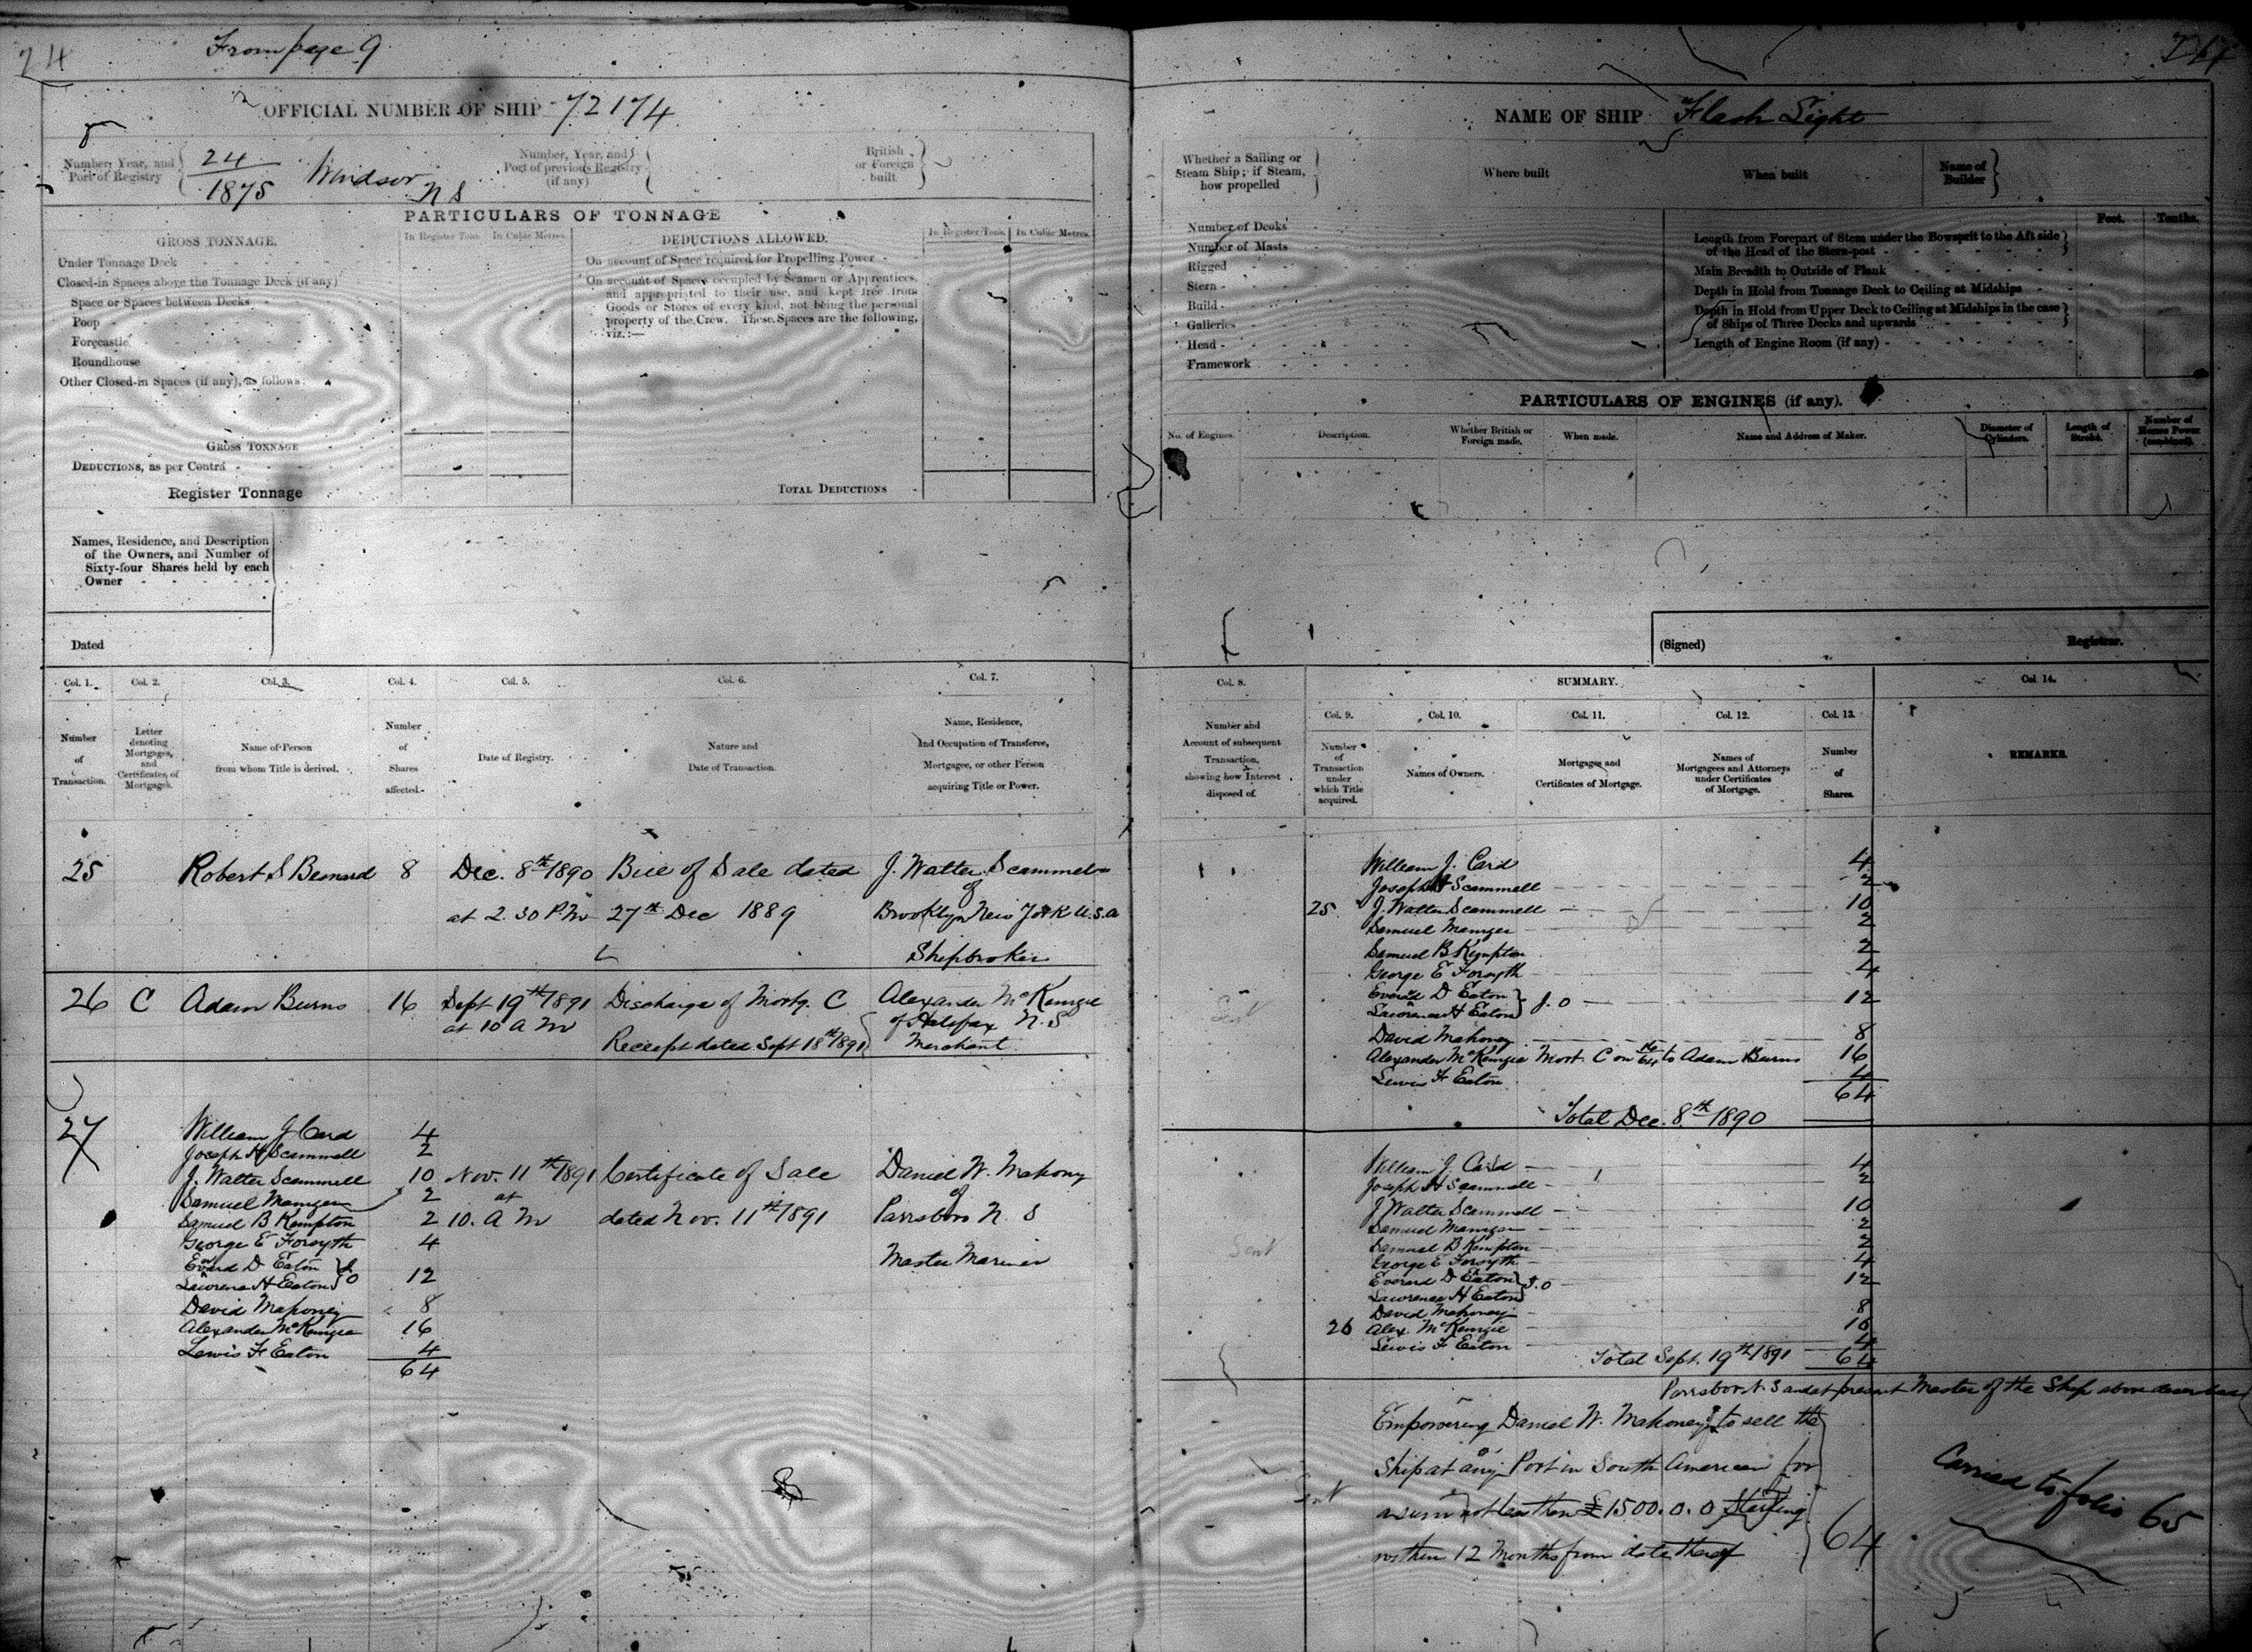 24
From page 9
OFFICIAL NUMBER OF SHIP 72174
Number, Year, and Port of Registry
24
1875
Windsor
N S
Number, Year, and Port of previous Registry (if any)
British or Foreign built
PARTICULARS OF TONNAGE
GROSS TONNAGE.
In Register Tons.
In Cubic Metres.
DEDUCTIONS ALLOWED.
In Register Tons.
In Cubic Metres.
Under Tonnage Deck
Closed-in Spaces above the Tonnage Deck (if any)
Space or Spaces between Decks
Poop
Forecastle
Roundhouse
Other Closed-in Spaces (if any), as follows:
GROSS TONNAGE
DEDUCTIONS, as per Contra
Register Tonnage
On account of Space required for Propelling Power
On account of Spaces occupied by Seamen or Apprentices,
and appropriated to their use, and kept free from
Goods or Stores of every kind, not being the personal
property of the Crew. These Spaces are the following,
viz.:—
TOTAL DEDUCTIONS
Names, Residence, and Description
of the Owners, and Number of
Sixty-four Shares held by each
Owner
Dated
Col. 1.
Number
of
Transaction.
Col. 2.
Letter
denoting
Mortgages,
and
Certificates, of
Mortgages.
Col. 3.
Name of Person
from whom Title is derived.
Col. 4.
Number
of
Shares
affected.
Col. 5.
Date of Registry.
Col. 6.
Nature and
Date of Transaction.
Col. 7.
Name, Residence,
And Occupation of Transferee,
Mortgagee, or other Person
acquiring Title or Power.
25 Robert S 8 Dec. 8th 1890 Bill of Sale dated J. Walter Scammell
of
at 2.30 P M 27th Dec 1889 Brooklyn New York U.S.A
Shipbroker
26 C Adam Burns 16 Sept 19th 1891 Discharge of Mortg. C Alexander McKenzie
at 10 A M of Halifax N.S
Receipt dated Sept 18th 1891 Merchant
27
William J Card 4
Joseph H Scammell 2
J. Walter Scammell 10 Nov. 11th 1891 Certificate of Sale Daniel W. Mahony
Samuel 2 at of
Samuel B Kempton 2 10. A M dated Nov. 11th 1891 Parrsboro N. S
George E Forsyth 4
Everd D Eaton Master Mariner
Lawrence H Eaton J O 12
David Mahoney 8
Alexander McKenzie 16
Lewis F Eaton 4
64
NAME OF SHIP Flash Light
Whether a Sailing or
Steam Ship; if Steam,
how propelled
Where built
When built
Name of Builder
Number of Decks
Number of Masts
Rigged
Stern
Build
Galleries
Head
Framework
Feet.
Tenths.
Length from Forepart of Stem under the Bowsprit to the Aft side
of the Head of the Stern-post
Main Breadth to Outside of Plank
Depth in Hold from Tonnage Deck to Ceiling at Midships
Depth in Hold from Upper Deck to Ceiling at Midships in the case
of Ships of Three Decks and upwards
Length of Engine Room (if any)
PARTICULARS OF ENGINES (if any).
No. of Engines.
Description.
Whether British or
Foreign made.
When made.
Name and Address of Maker.
Diameter of
Cylinders.
Length of
Stroke.
Number of
Horses Power
(combined).
(Signed)
Registrar.
Col. 8.
Number and
Account of subsequent
Transaction,
showing how Interest
disposed of.
SUMMARY.
Col. 9.
Number
of
Transaction
under
which Title
acquired.
Col. 10.
Names of Owners.
Col. 11.
Mortgages and
Certificates of Mortgage.
Col. 12.
Names of
Mortgagees and Attorneys
under Certificates
of Mortgage.
Col. 13.
Number
of
Shares.
Col. 14.
REMARKS.
William J. Card 4
Joseph H Scammell 2
25 J. Walter Scammell 10
Samuel 2
Samuel B Kempton 2
George E Forsyth 4
Everd D Eaton
Lawrence H Eaton J. O 12
David Mahoney 8
Alexander McKenzie Mort. C on 16/64 to Adam Burns 16
Lewis F Eaton 4
64
Total Dec. 8th 1890
William J. Card 4
Joseph H Scammell 2
J Walter Scammell 10
Samuel 2
Samuel B Kempton 2
Sent
George E Forsyth 4
Everard D Eaton
Lawrence H Eaton J.O 12
David Mahoney 8
26 Alex. McKenzie 16
Lewis F Eaton 4
Total Sept. 19th 1891 64
Parrsboro N. S and at present Master of the Ship above described
Empowering Daniel W. Mahoney of to sell the
Ship at any Port in South American for
a sum not less than £1500.0.0 Sterling
within 12 Months from date thereof
64
Carried to folio 65